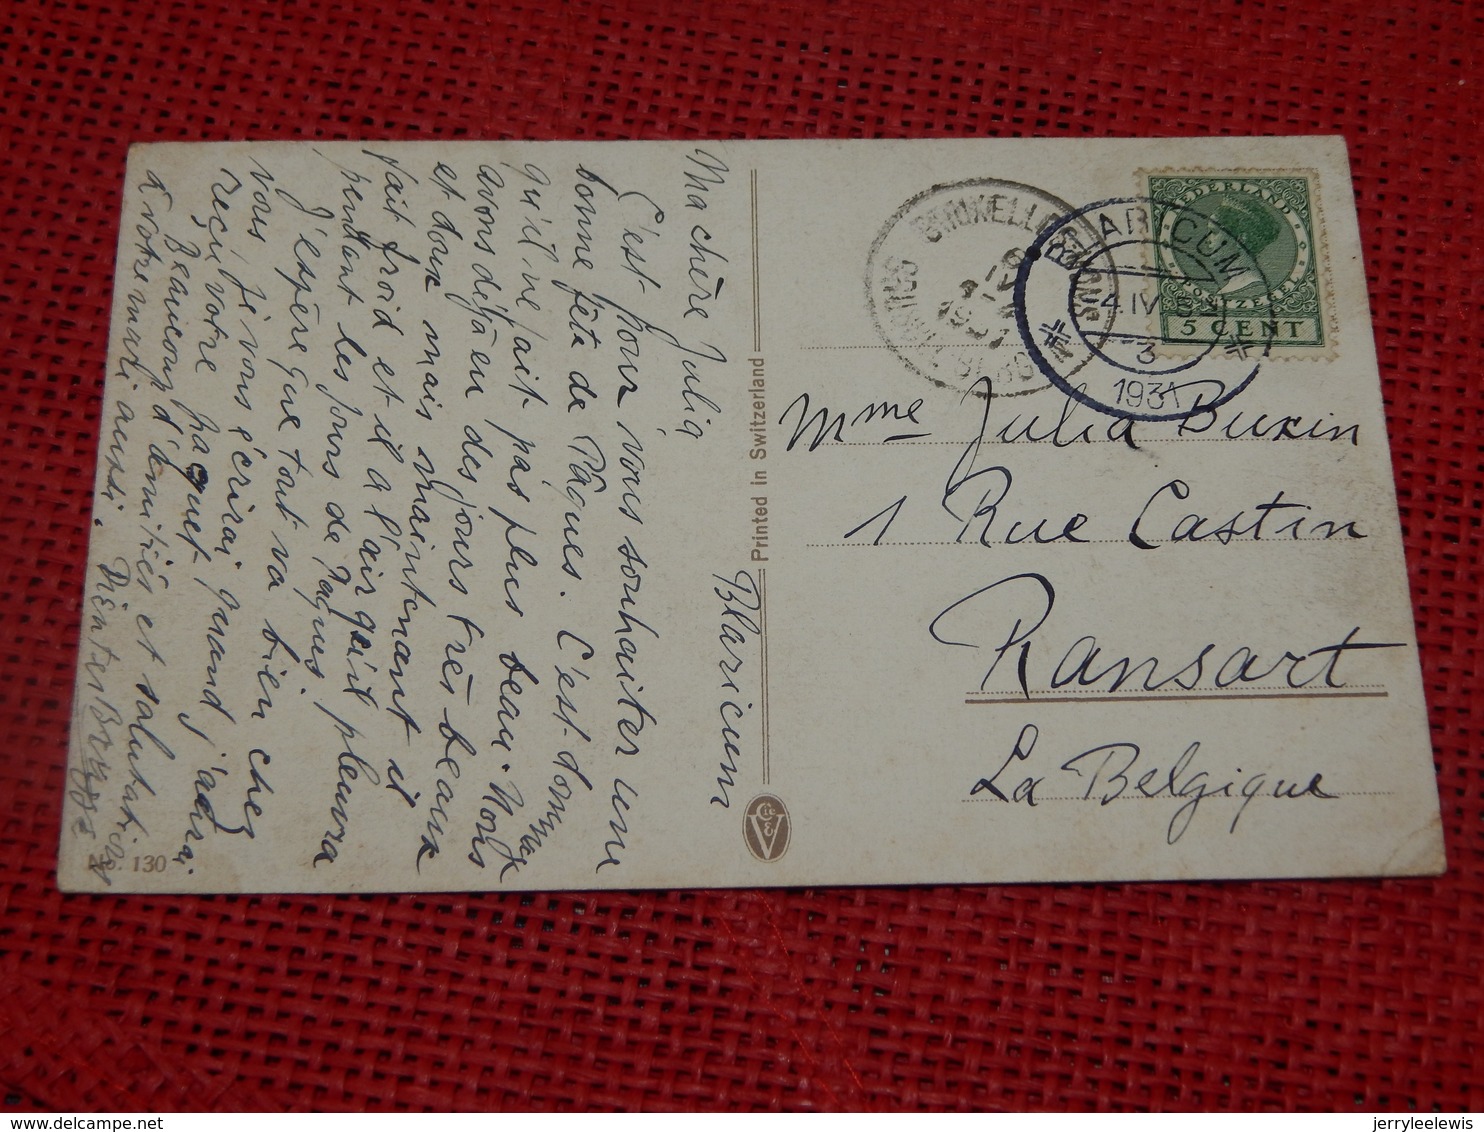 Blaricum
Ma chère Julia
C'est pour vous souhaiter une
bonne fête de Pâques. C'est dommage
qu'il ne fait pas plus beau. Nous
avons déja eu des jours très beaux
et doux mais maintenant il
fait froid et il a l'air qu'il pleuvra
pendant les jours de Pâques.
J'espère que tout va bien chez
vous. Je vous écrirai quand j'aurai
reçu votre paquet.
Beaucoup d'amitiés et salutations
à votre mari aussi.
No. 130
Printed in Switzerland
NEDERLAND
POSTZEGEL
5 CENT
BLARICUM
4 IV
3
1931
BRUXELLES
1931
Mme Julia Buxin
1 Rue Castin
Ransart
La Belgique
delcampe.net
jerryleelewis